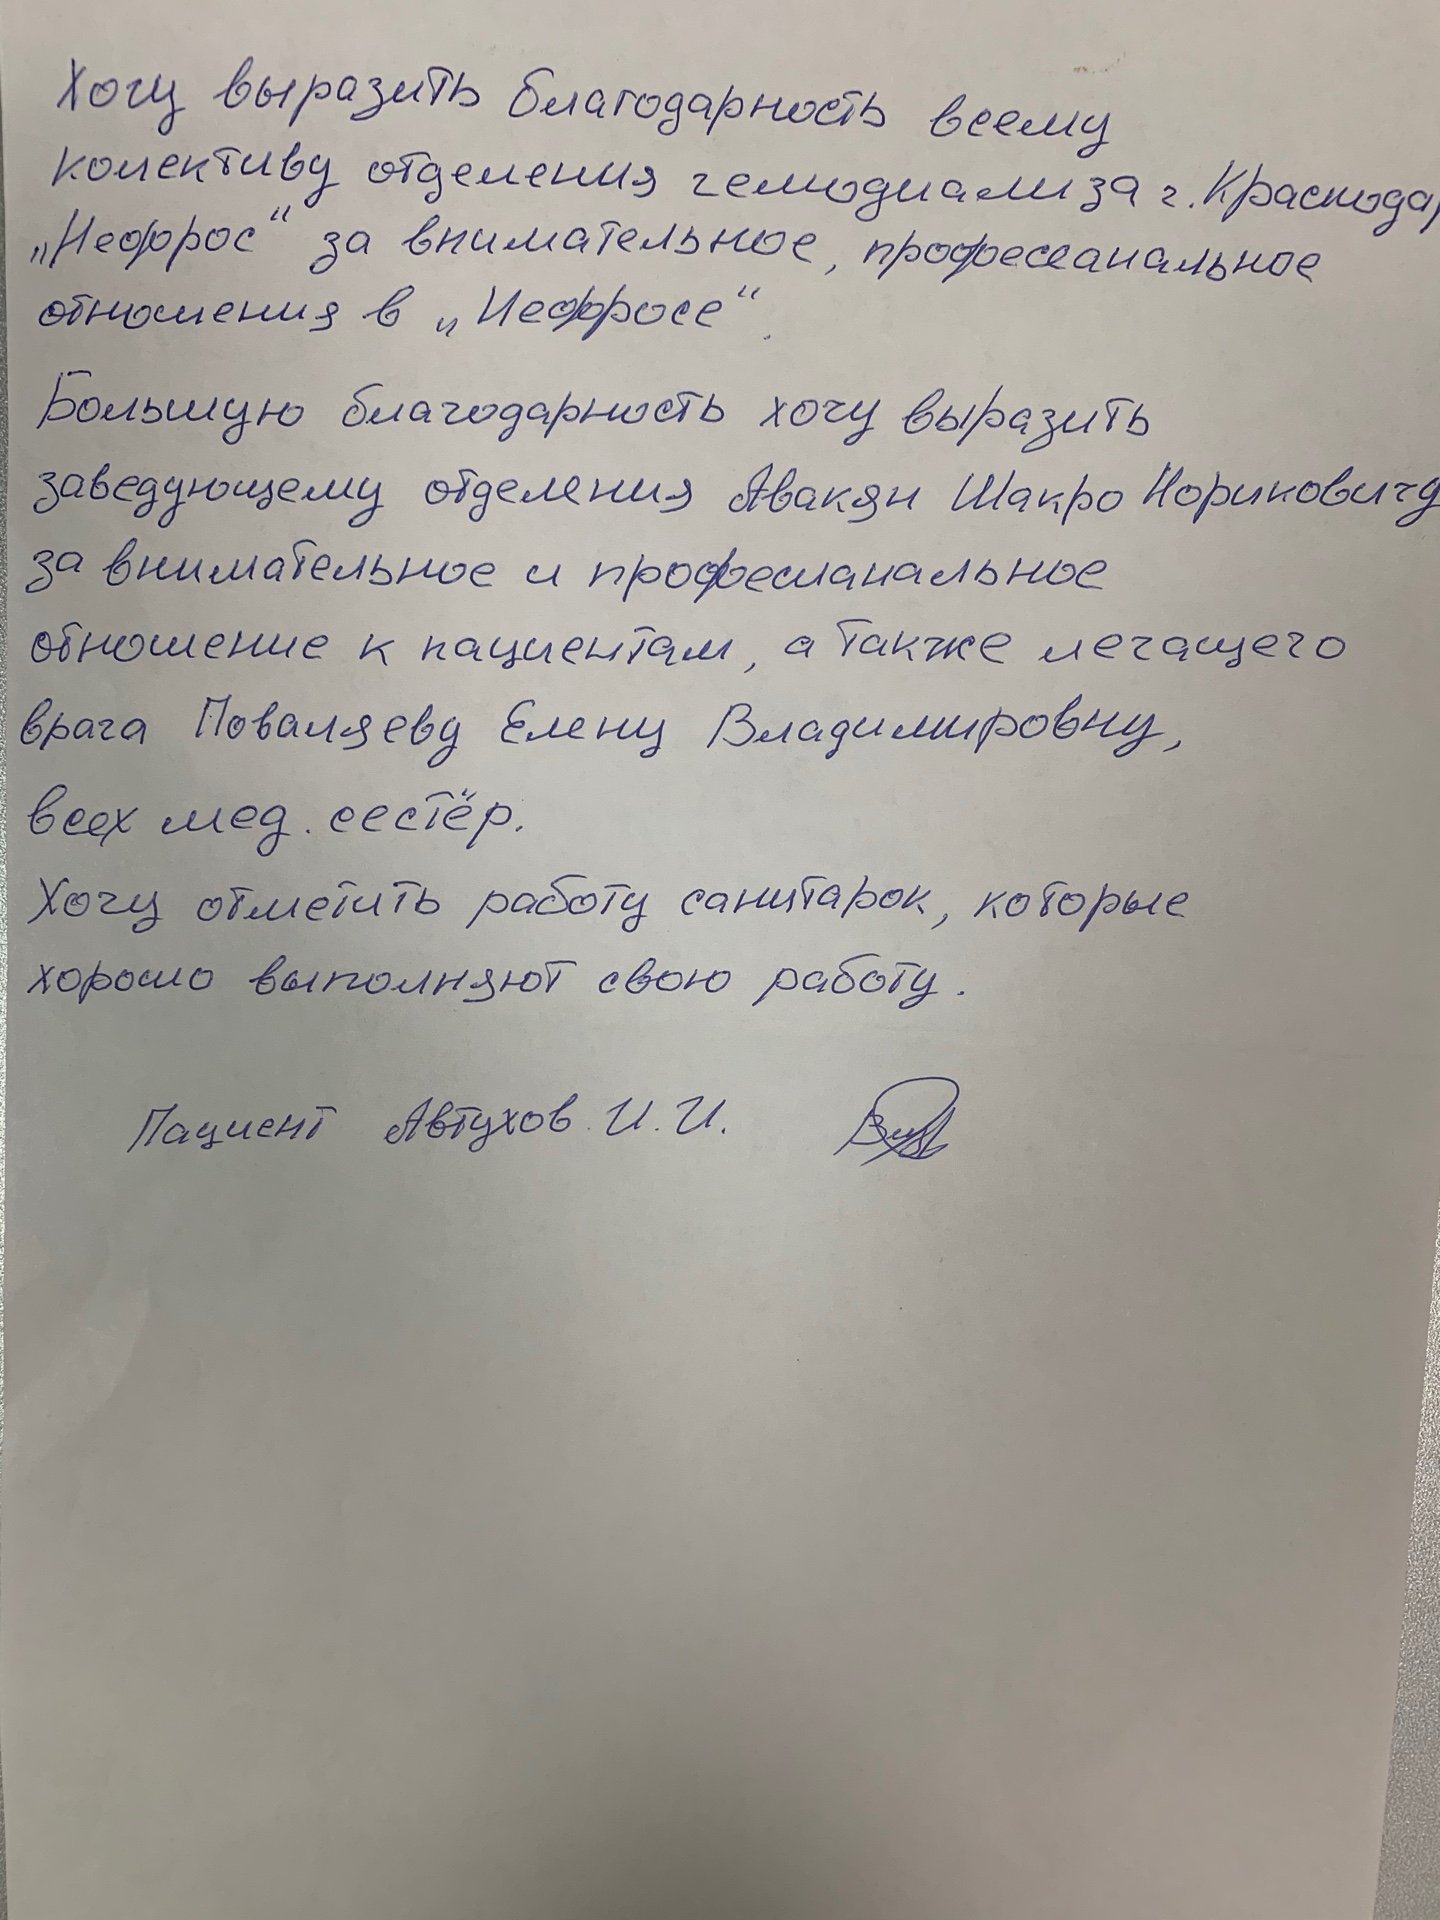 Хочу выразить благодарность всему
колективу отделения гемодиализа г. Краснодар
„Нефрос“ за внимательное, професеанальное
отношения в „Нефросе“.
Большую благодарность хочу выразить
заведующему отделения Авакян Шакро Нориковичу
за внимательное и професианальное
отношение к пациентам, а также лечащего
врача Поваляеву Елену Владимировну,
всех мед. сестёр.
Хочу отметить работу санитарок, которые
хорошо выполняют свою работу.
Пациент Автухов И. И.